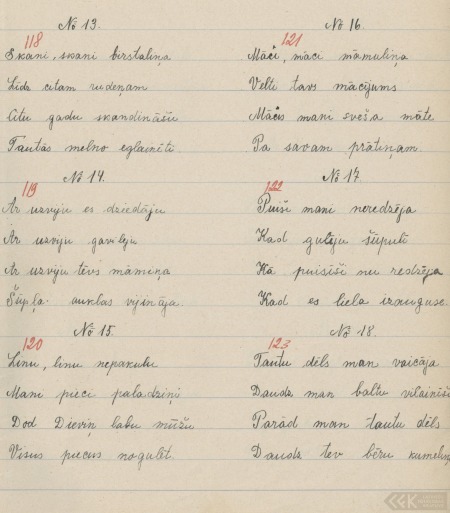 No 13.
118
Skani, skani birstaliņa
Līdz citam rudeņam
Citu gadu skandināšu
Tautās melno eglainīti
No 14.
119
Ar uzviju es dziedāju
Ar uzviju gavilēju
Ar uzviju tēvs māmiņa
Šūpļa auklas vijināja.
No 15.
120
Linu, linu nepakulu
Mani pieci paladziņi
Dod Dieviņ labu mūžu
Visus piecus nogulēt.
No 16.
121
Māci, māci māmuliņa
Velti tavs mācījums
Mācīs mani sveša māte
Pa savam prātiņam.
No 17.
122
Puiši mani neredzēja
Kad gulēju šūpulī
Kā puisiši nu redzēja
Kad es liela izauguse.
No 18.
123
Tautu dēls man vaicāja
Daudz man baltu vilainīš
Parād man tautu dēls
Daudz tev bēru kumeliņ